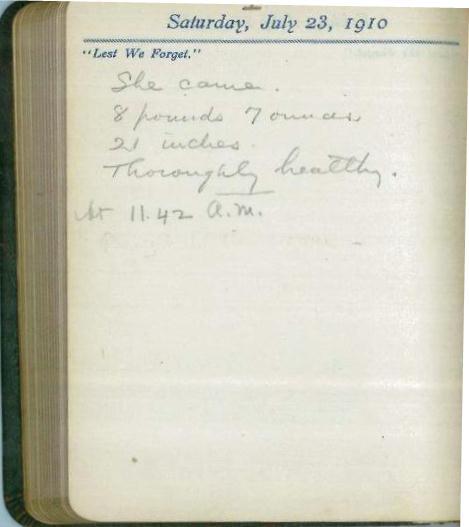 Saturday, July 23, 1910
"Lest We Forget."
She came.
8 pounds 7 ounces
21 inches.
Thoroughly healthy.
At 11.42 A.M.